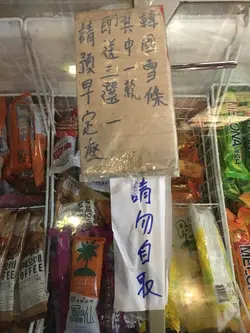 韓國雪條
其中一款
即送三盞一
請預早定座
請勿自取
COFFEE